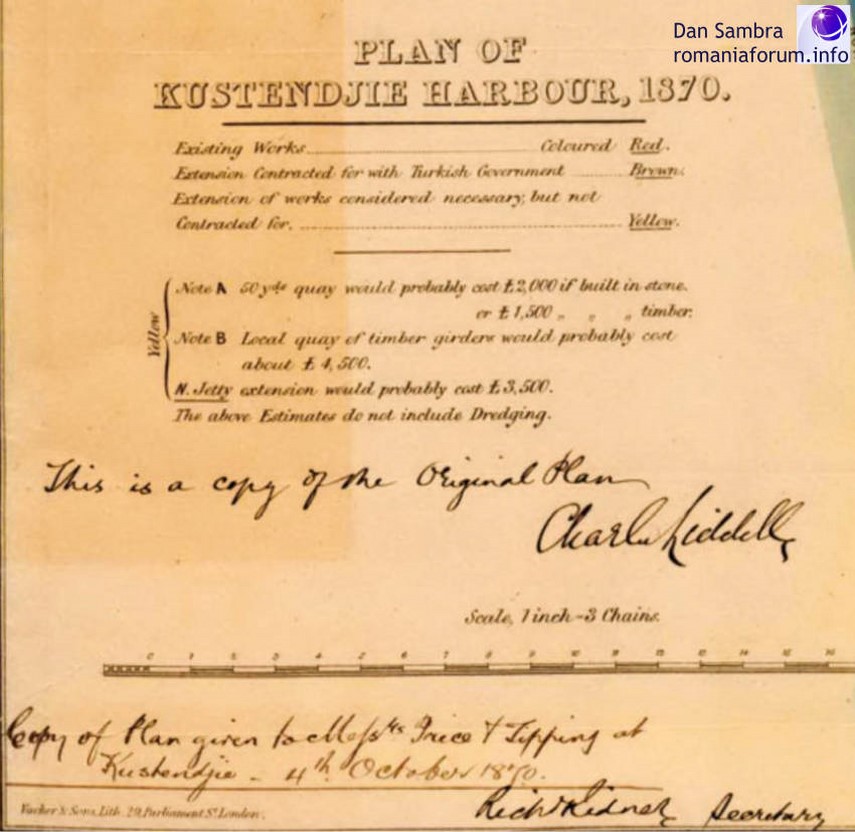 Dan Sambra
romaniaforum.info
PLAN OF
KUSTENDJIE HARBOUR, 1870.
Existing Works Coloured Red.
Extension Contracted for with Turkish Government Brown.
Extension of works considered necessary, but not
Contracted for. Yellow.
Yellow
Note A 50 yds quay would probably cost £2,000 if built in stone.
or £1,500 „ „ „ timber.
Note B Local quay of timber girders would probably cost
about £4,500.
N. Jetty extension would probably cost £3,500.
The above Estimates do not include Dredging.
This is a copy of the Original Plan
Charles Liddell
Scale, 1 inch = 3 Chains.
0 1 2 3 4 5 6 7 8 9 10 11 12 13 14 15 16
Copy of Plan given to Messrs Price & Tipping at
Kustendjie - 4th October 1870.
Vacher & Sons, Lith. 29, Parliament St London.
Secretary